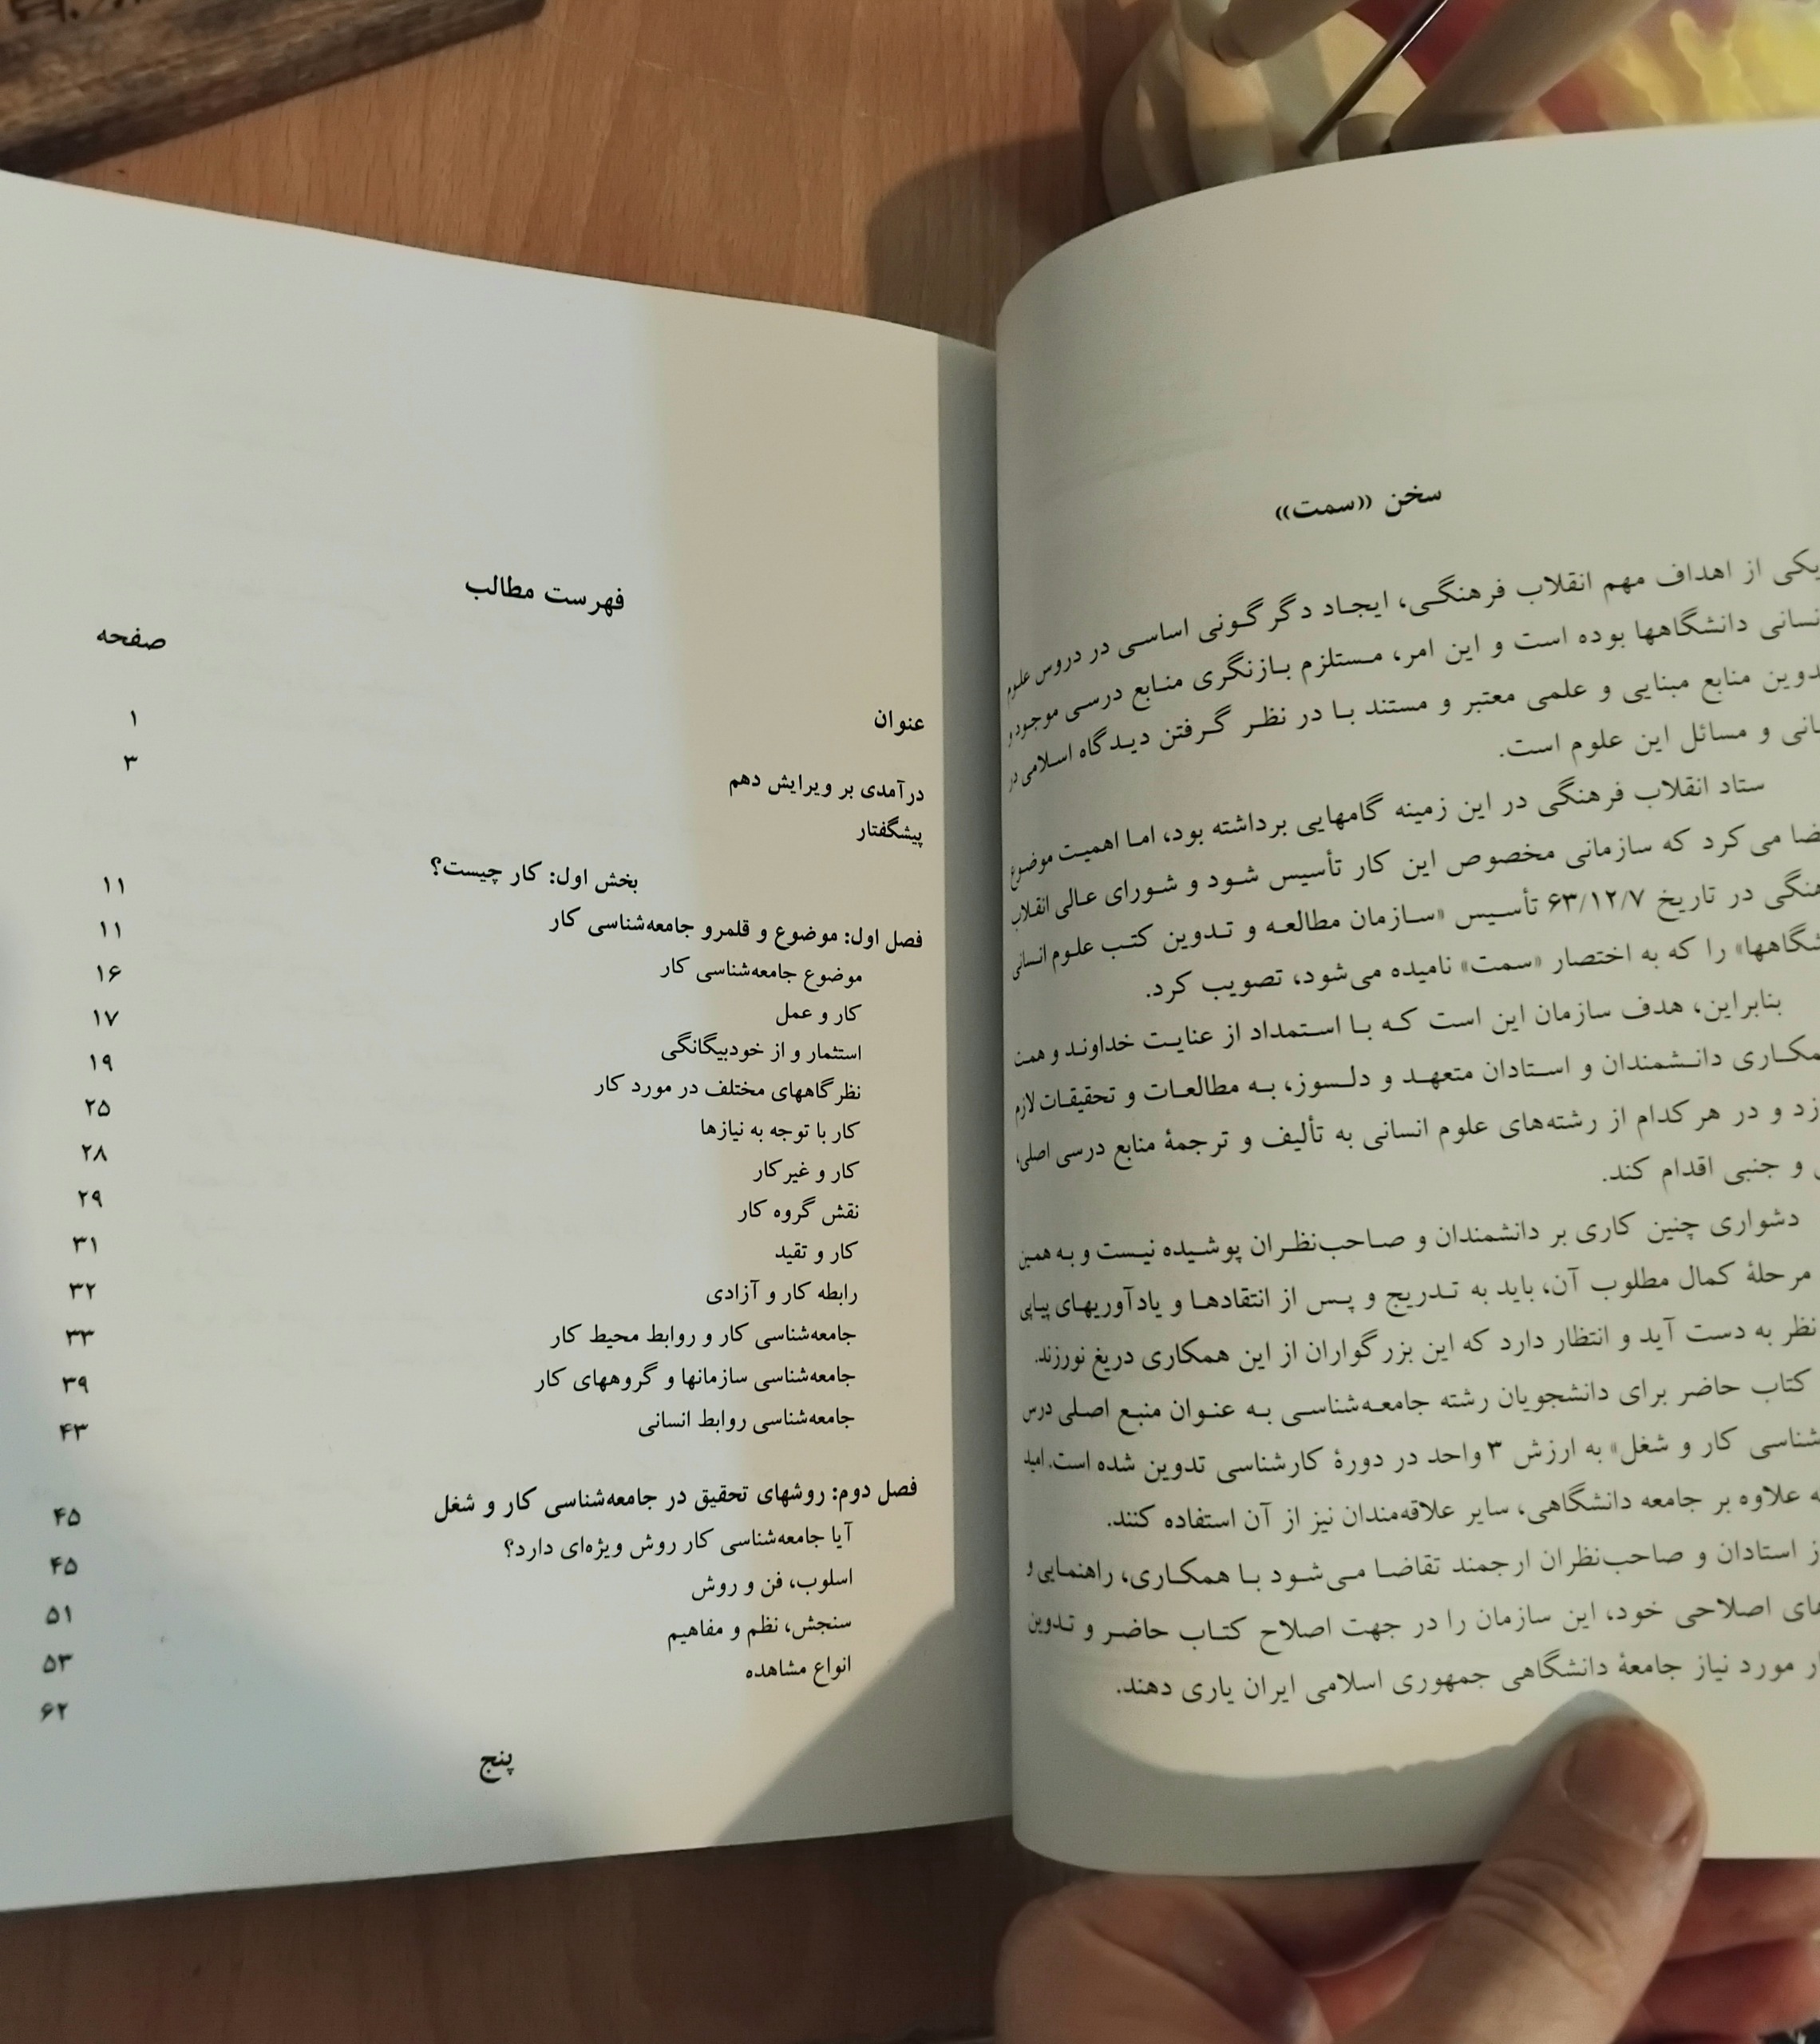 سخن «سمت»
یکی از اهداف مهم انقلاب فرهنگی، ایجاد دگرگونی اساسی در دروس علوم
دانشگاهها بوده است و این امر، مستلزم بازنگری منابع درسی موجود و
منابع مبنایی و علمی معتبر و مستند با در نظر گرفتن دیدگاه اسلامی در
و مسائل این علوم است.
ستاد انقلاب فرهنگی در این زمینه گامهایی برداشته بود، اما اهمیت موضوع
می‌کرد که سازمانی مخصوص این کار تأسیس شود و شورای عالی انقلاب
در تاریخ ۶۳/۱۲/۷ تأسیس «سازمان مطالعه و تدوین کتب علوم انسانی
را که به اختصار «سمت» نامیده می‌شود، تصویب کرد.
بنابراین، هدف سازمان این است که با استمداد از عنایت خداوند و همت
دانشمندان و استادان متعهد و دلسوز، به مطالعات و تحقیقات لازم
و در هر کدام از رشته‌های علوم انسانی به تألیف و ترجمهٔ منابع درسی اصلی،
و جنبی اقدام کند.
دشواری چنین کاری بر دانشمندان و صاحب‌نظران پوشیده نیست و به همین
مرحلهٔ کمال مطلوب آن، باید به تدریج و پس از انتقادها و یادآوریهای پیاپی
نظر به دست آید و انتظار دارد که این بزرگواران از این همکاری دریغ نورزند.
کتاب حاضر برای دانشجویان رشته جامعه‌شناسی به عنوان منبع اصلی درس
کار و شغل» به ارزش ۳ واحد در دورهٔ کارشناسی تدوین شده است. امید
علاوه بر جامعه دانشگاهی، سایر علاقه‌مندان نیز از آن استفاده کنند.
استادان و صاحب‌نظران ارجمند تقاضا می‌شود با همکاری، راهنمایی و
اصلاحی خود، این سازمان را در جهت اصلاح کتاب حاضر و تدوین
مورد نیاز جامعهٔ دانشگاهی جمهوری اسلامی ایران یاری دهند.
فهرست مطالب
عنوان صفحه
درآمدی بر ویرایش دهم ۱
پیشگفتار ۳
بخش اول: کار چیست؟
فصل اول: موضوع و قلمرو جامعه‌شناسی کار ۱۱
موضوع جامعه‌شناسی کار ۱۱
کار و عمل ۱۶
استثمار و از خودبیگانگی ۱۷
نظرگاههای مختلف در مورد کار ۱۹
کار با توجه به نیازها ۲۵
کار و غیرکار ۲۸
نقش گروه کار ۲۹
کار و تقید ۳۱
رابطه کار و آزادی ۳۲
جامعه‌شناسی کار و روابط محیط کار ۳۳
جامعه‌شناسی سازمانها و گروههای کار ۳۹
جامعه‌شناسی روابط انسانی ۴۳
فصل دوم: روشهای تحقیق در جامعه‌شناسی کار و شغل ۴۵
آیا جامعه‌شناسی کار روش ویژه‌ای دارد؟ ۴۵
اسلوب، فن و روش ۵۱
سنجش، نظم و مفاهیم ۵۳
انواع مشاهده ۶۲
پنج